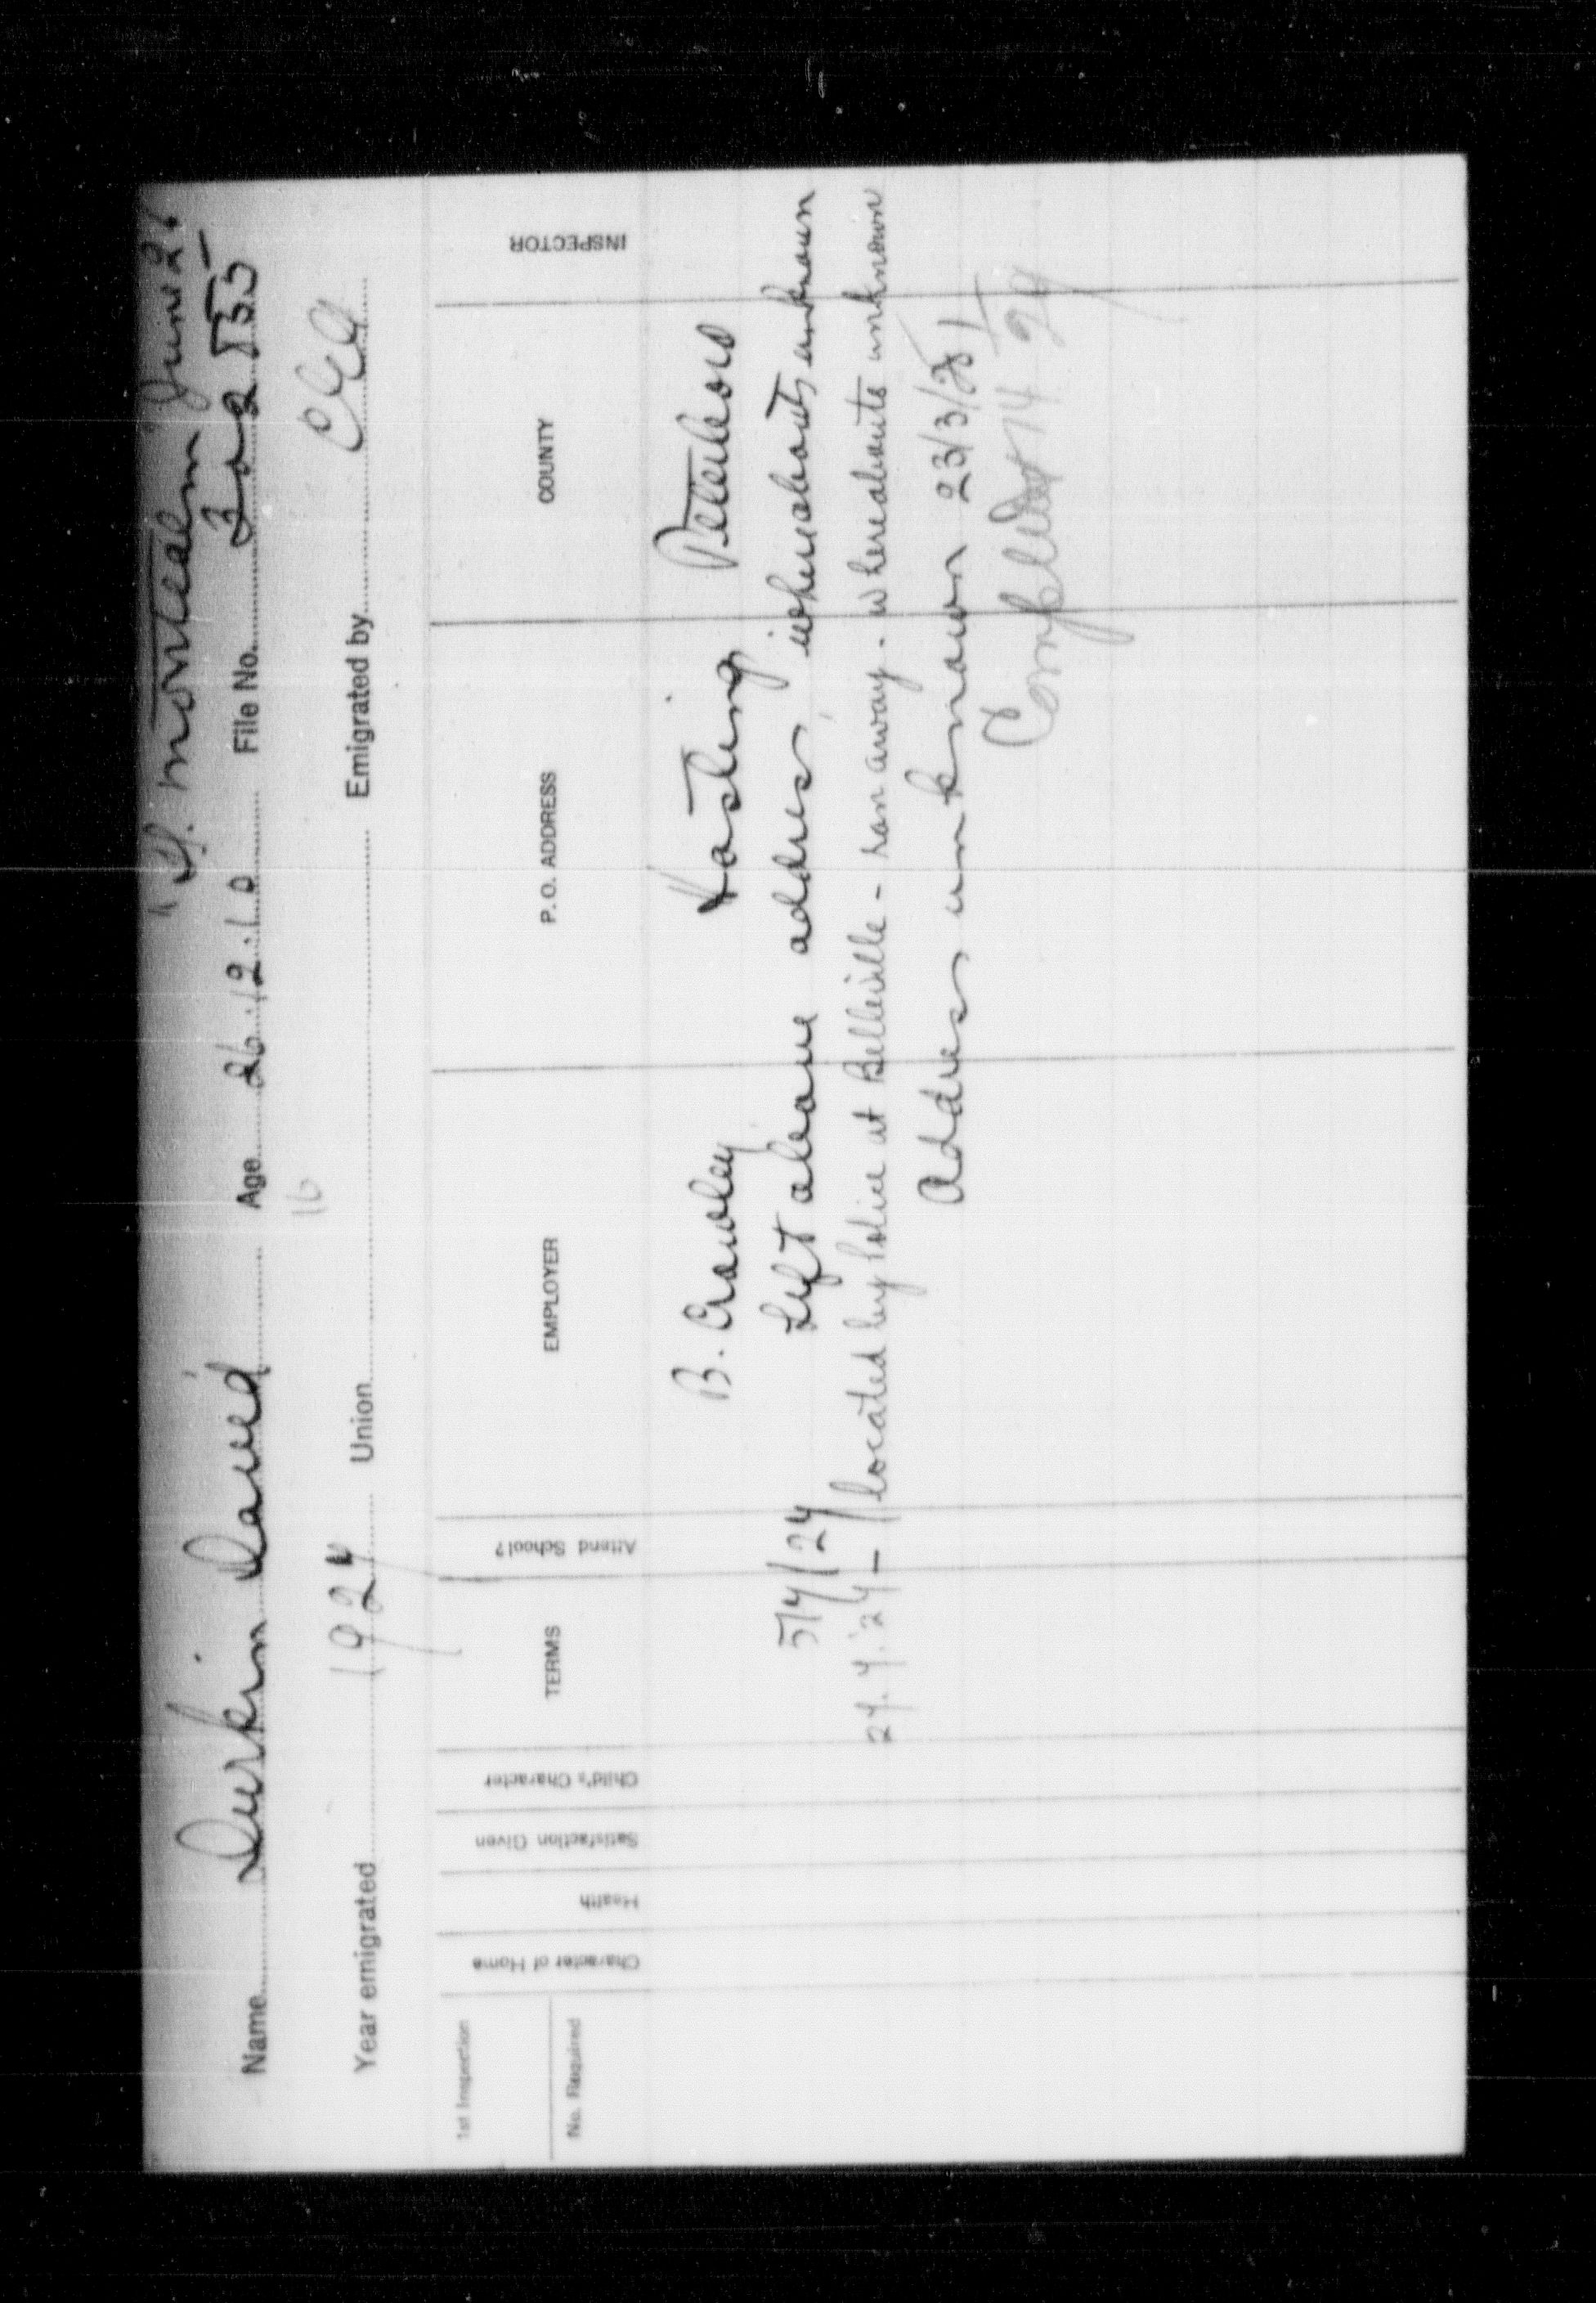 "S. Montcalm June 26
Name Durkin David Age 26.12.10 File No. I02855
16
Year emigrated 1924 Union Emigrated by CCEA
1st Inspection
No. Required
Character of Home
Health
Satisfaction Given
Child's Character
TERMS
Attend School?
EMPLOYER
P. O. ADDRESS
COUNTY
INSPECTOR
B. Crowley Hastings Peterboro
5/7/24 Left above address, whereabouts unknown
24.7.24 – located by Police at Belleville – ran away. whereabouts unknown
Address unknown 23/3/28
Completed